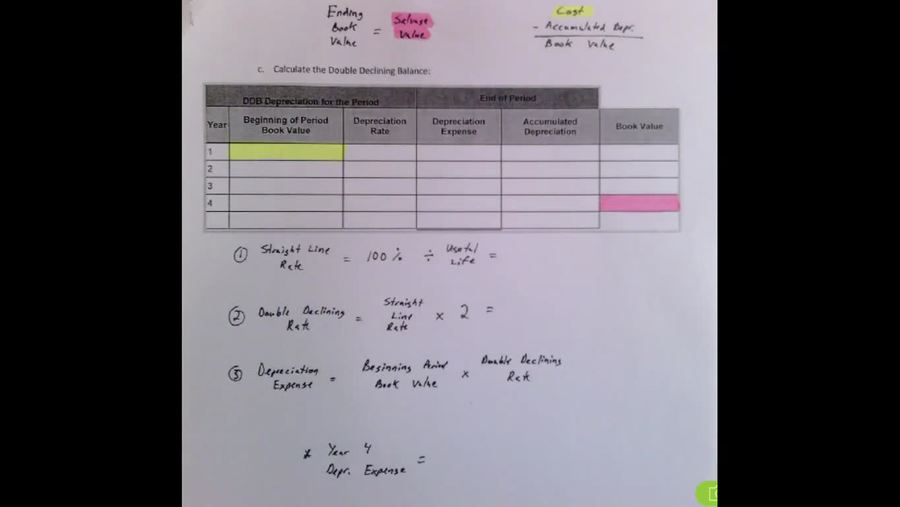 Ending
Book
Value
=
Salvage
Value
Cost
- Accumulated Depr.
Book Value
c. Calculate the Double Declining Balance:
DDB Depreciation for the Period
End of Period
Year
Beginning of Period
Book Value
Depreciation
Rate
Depreciation
Expense
Accumulated
Depreciation
Book Value
1
2
3
4
① Straight Line
Rate
= 100% ÷ Useful
Life
=
② Double Declining
Rate
= Straight
Line
Rate
× 2 =
③ Depreciation
Expense
= Beginning Period
Book Value
× Double Declining
Rate
* Year 4
Depr. Expense =